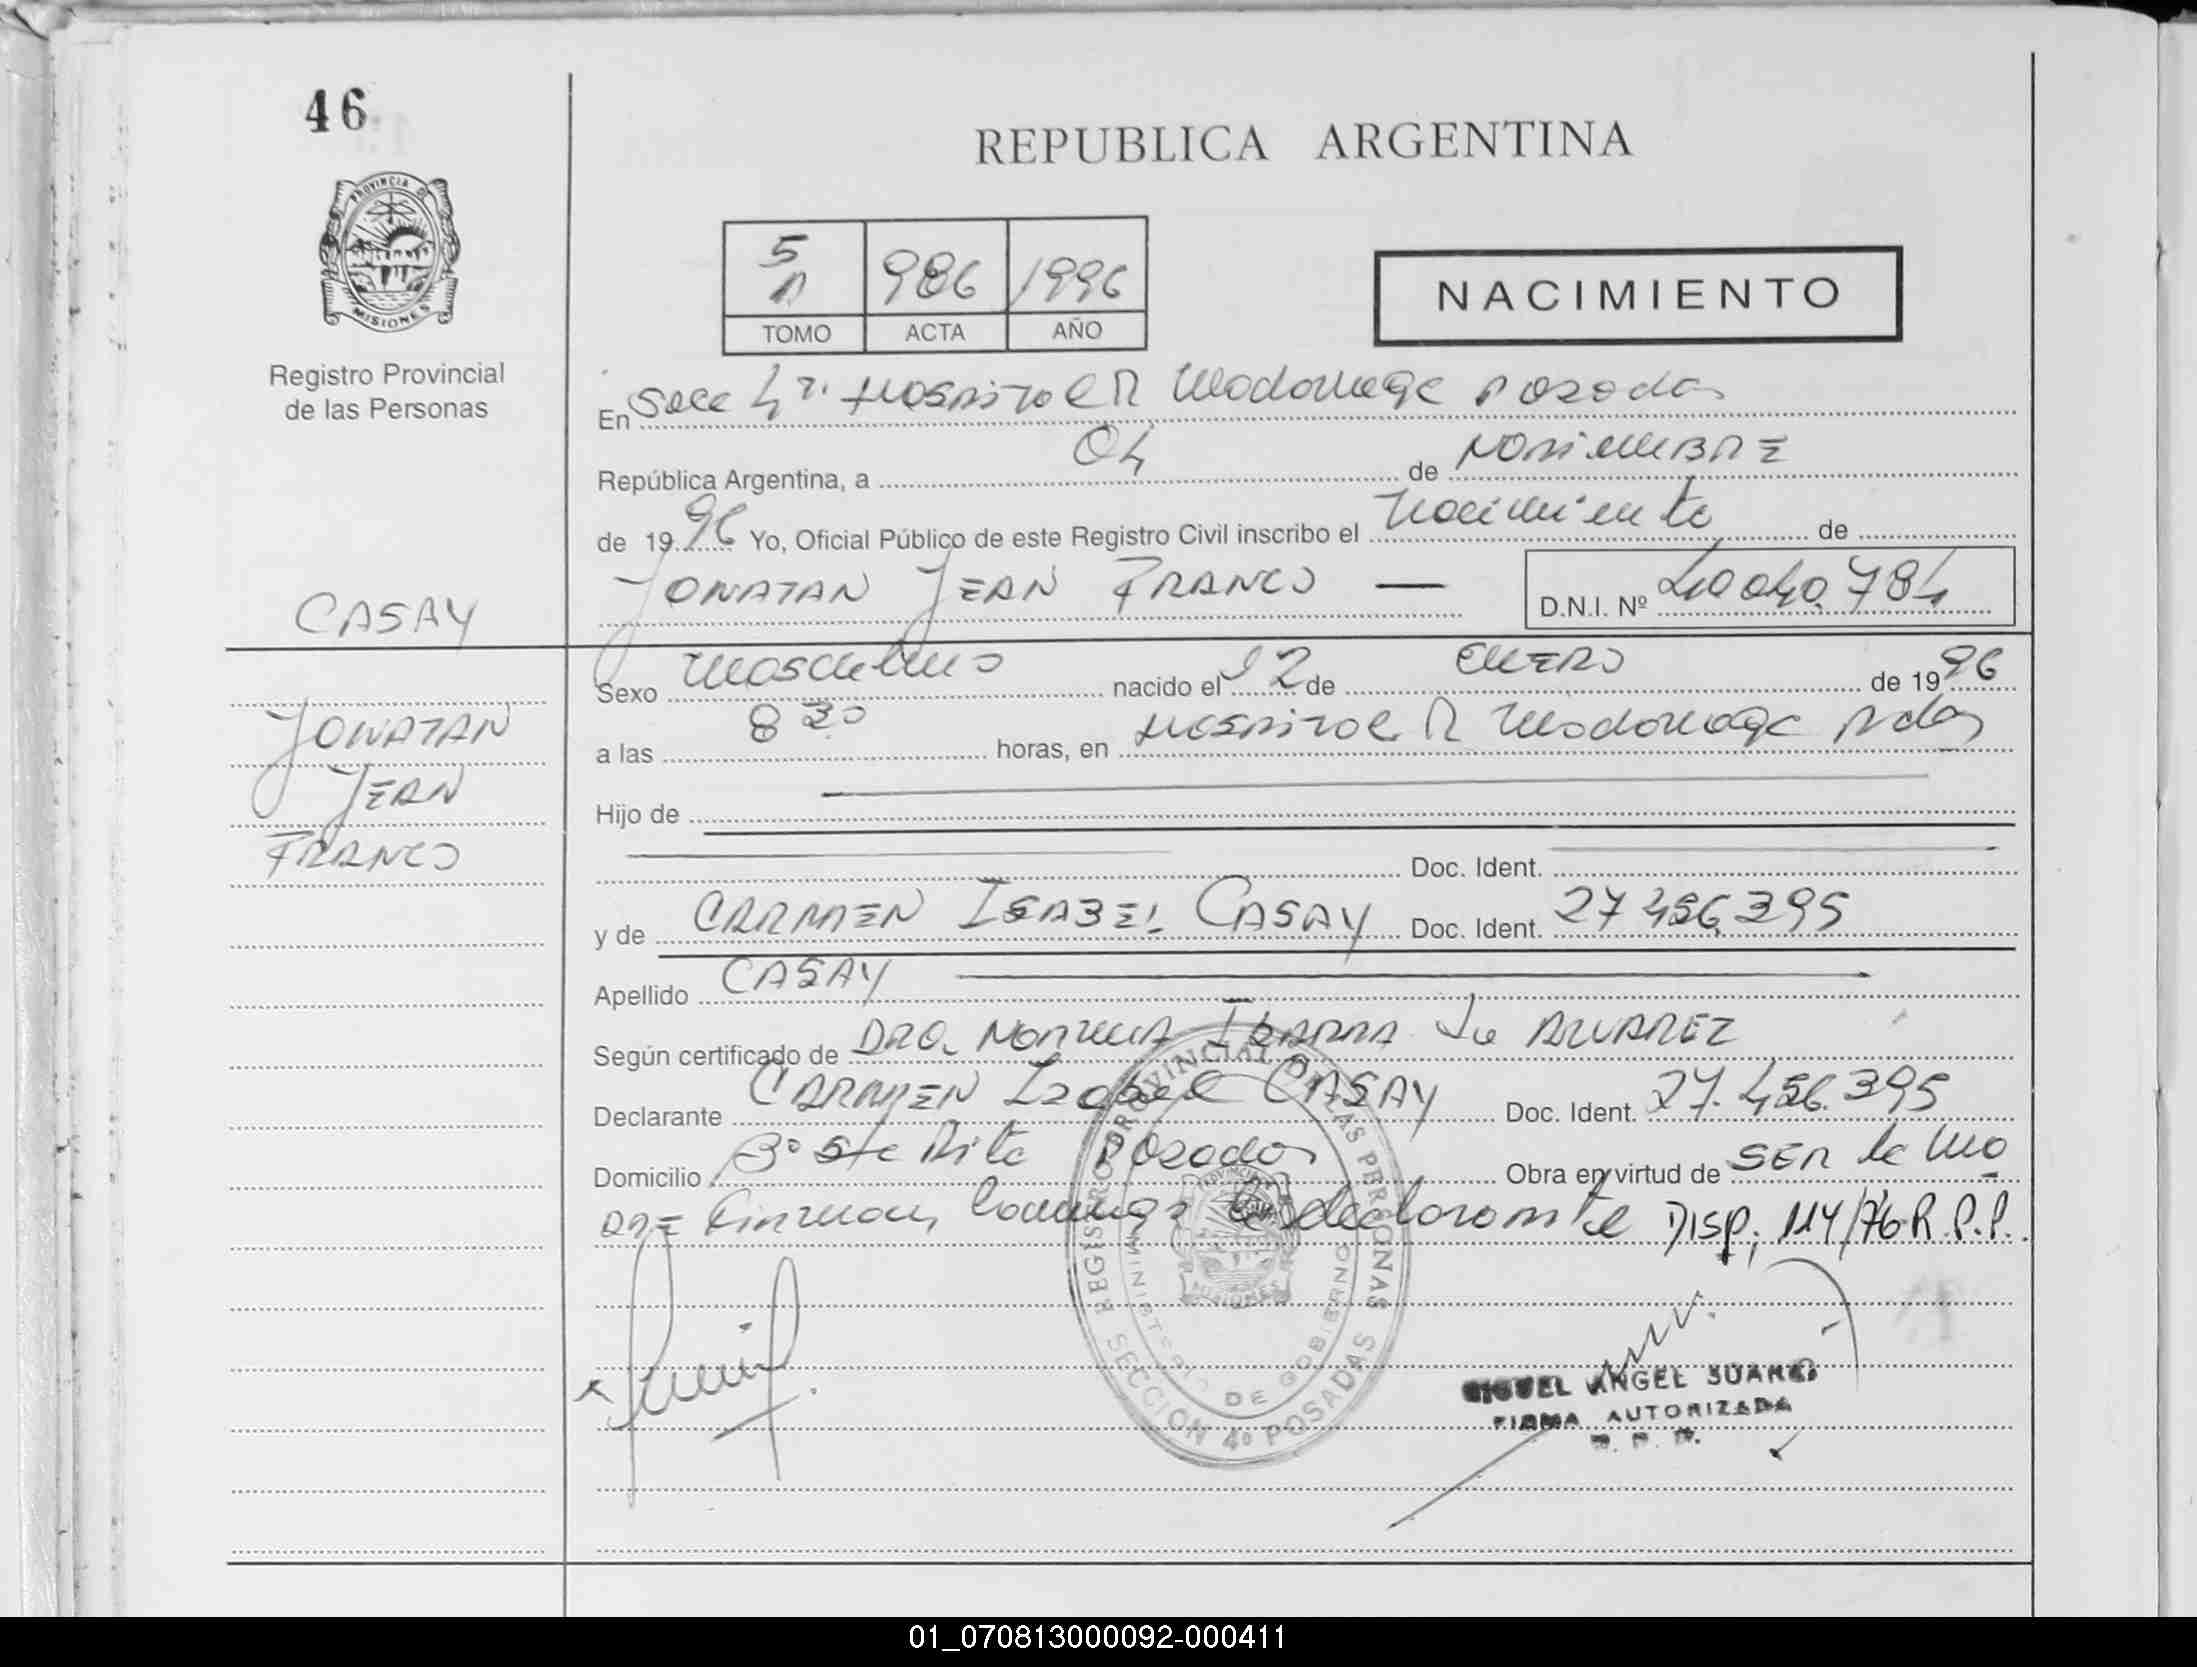 46
REPUBLICA ARGENTINA
PROVINCIA DE
MISIONES
Registro Provincial
de las Personas
5 986 1996
TOMO ACTA AÑO
NACIMIENTO
En Secc 4ª. Hospital R Madariaga Posadas
República Argentina, a 04 de NOVIEMBRE
de 1996 Yo, Oficial Público de este Registro Civil inscribo el Nacimiento de
JONATAN JEAN FRANCO — D.N.I. Nº 40.040.784
CASAY
JONATAN
JEAN
FRANCO
Sexo Masculino nacido el 12 de ENERO de 1996
a las 8 30 horas, en Hospital R Madariaga Pdas
Hijo de
Doc. Ident.
y de CARMEN ISABEL CASAY Doc. Ident. 27.456.395
Apellido CASAY
Según certificado de DRA. NORMA IBARRA de ALVAREZ
Declarante CARMEN Isabel CASAY Doc. Ident. 27.456.395
Domicilio Bº Sta Rita Posadas Obra en virtud de SER la Ma
DRE Firman Conmigo la declarante DISP. 114/76 R.P.P.
REGISTRO PROVINCIAL DE LAS PERSONAS
MINISTERIO DE GOBIERNO
PROVINCIA DE
MISIONES
SECCION 4º POSADAS
MIGUEL ANGEL SUAREZ
FIRMA AUTORIZADA
R. P. P.
01_070813000092-000411